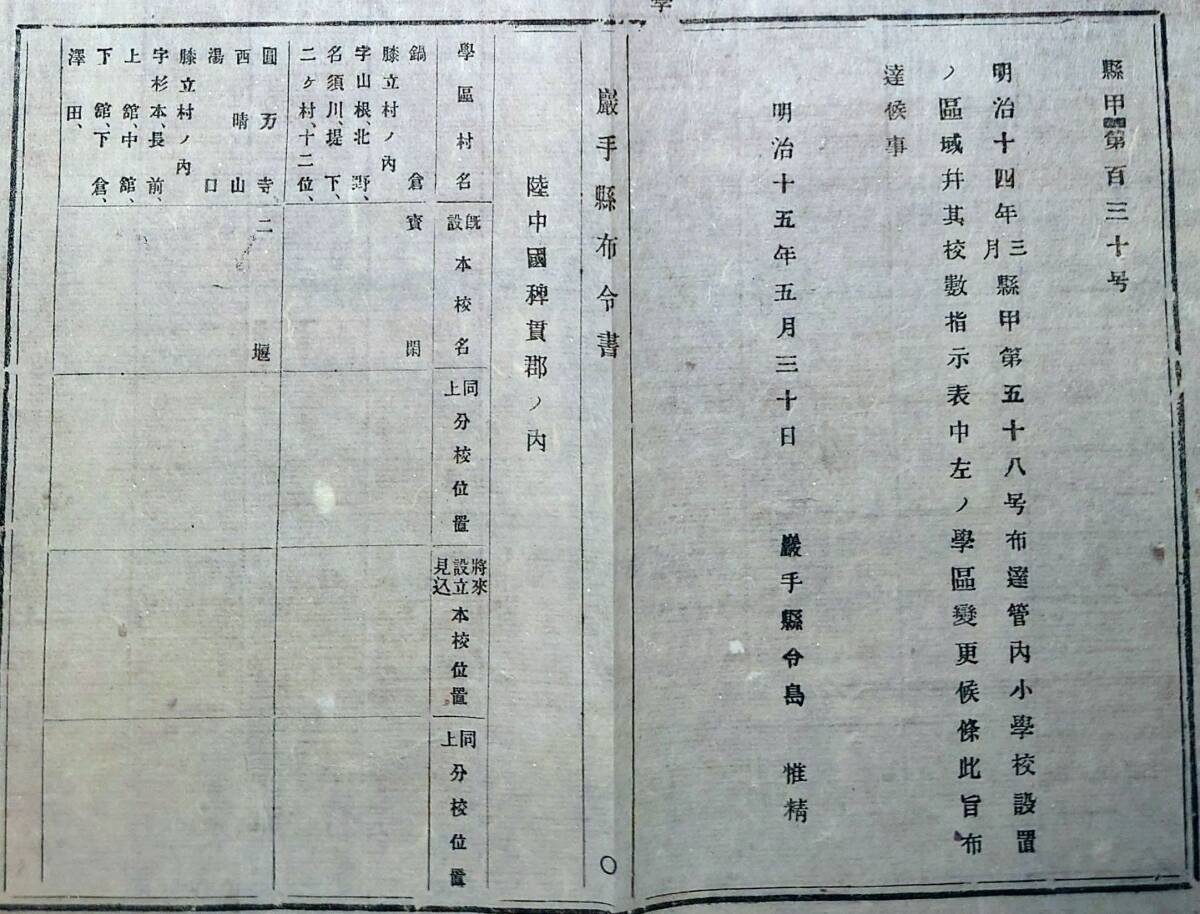 縣甲第百三十号
明治十四年三月縣甲第五十八号布達管内小學校設置
ノ區域幷其校數指示表中左ノ學區變更候條此旨布
達候事
明治十五年五月三十日　巖手縣令島　惟精
巖手縣布令書
陸中國稗貫郡ノ内
學區村名
既設本校名
同上分校位置
將來設立見込本校位置
同上分校位置
鍋倉
膝立村ノ内
字山根、北野、
名須川、堤下、
二ケ村、十二位、
寳閑
圓万寺
西晴山
湯口
膝立村ノ内
字杉本、長前、
上舘、中舘、
下舘、下倉、
澤田、
二堰